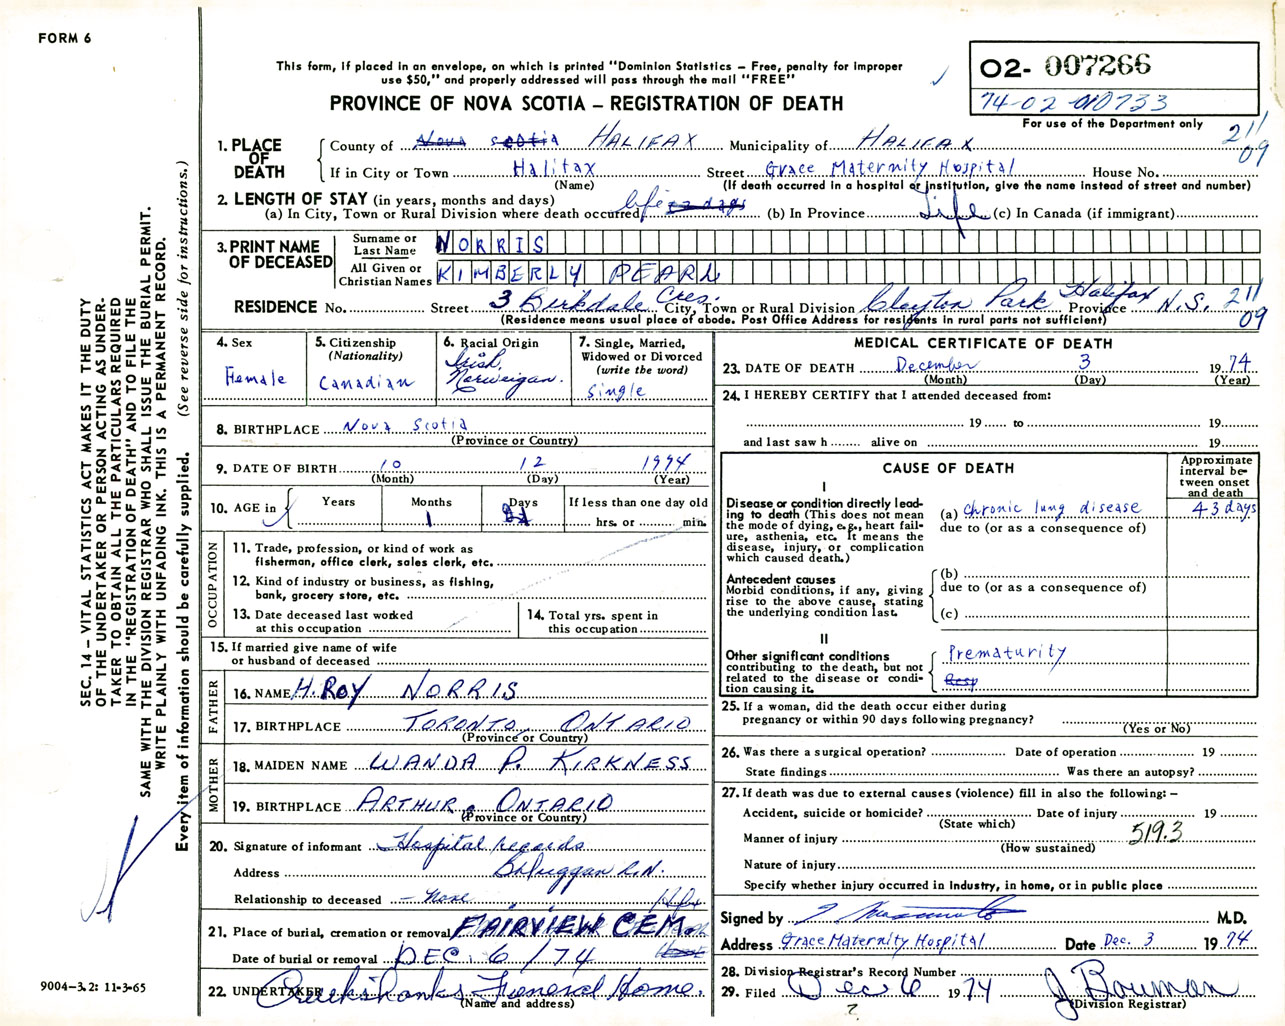 FORM 6
This form, if placed in an envelope, on which is printed "Dominion Statistics – Free, penalty for improper
use $50," and properly addressed will pass through the mail "FREE"
PROVINCE OF NOVA SCOTIA – REGISTRATION OF DEATH
02- 007266
74-02-010733
For use of the Department only
211
09
1. PLACE OF DEATH
County of Nova Scotia HALIFAX Municipality of HALIFAX
If in City or Town Halifax Street Grace Maternity Hospital House No.
(Name) (If death occurred in a hospital or institution, give the name instead of street and number)
2. LENGTH OF STAY (in years, months and days)
(a) In City, Town or Rural Division where death occurred life days (b) In Province Life (c) In Canada (if immigrant)
3. PRINT NAME OF DECEASED
Surname or Last Name NORRIS
All Given or Christian Names KIMBERLY PEARL
RESIDENCE No. Street 3 Birkdale Cres. City, Town or Rural Division Clayton Park Halifax Province N.S. 211
09
(Residence means usual place of abode. Post Office Address for residents in rural parts not sufficient)
4. Sex
Female
5. Citizenship
(Nationality)
Canadian
6. Racial Origin
Irish,
Norweigan.
7. Single, Married,
Widowed or Divorced
(write the word)
Single
8. BIRTHPLACE Nova Scotia
(Province or Country)
9. DATE OF BIRTH 10 12 1974
(Month) (Day) (Year)
10. AGE in
Years
Months
1
Days
21
If less than one day old
hrs. or min.
OCCUPATION
11. Trade, profession, or kind of work as
fisherman, office clerk, sales clerk, etc.
12. Kind of industry or business, as fishing,
bank, grocery store, etc.
13. Date deceased last worked
at this occupation
14. Total yrs. spent in
this occupation
15. If married give name of wife
or husband of deceased
FATHER
16. NAME H. ROY NORRIS
17. BIRTHPLACE TORONTO, ONTARIO
(Province or Country)
MOTHER
18. MAIDEN NAME WANDA P. KIRKNESS
19. BIRTHPLACE ARTHUR, ONTARIO
(Province or Country)
20. Signature of informant Hospital records
Address R.N.
Relationship to deceased – None Hfx
21. Place of burial, cremation or removal FAIRVIEW CEM.
Date of burial or removal DEC. 6/74
22. UNDERTAKER Cruikshanks Funeral Home.
(Name and address)
MEDICAL CERTIFICATE OF DEATH
23. DATE OF DEATH December 3 1974
(Month) (Day) (Year)
24. I HEREBY CERTIFY that I attended deceased from:
19 to 19
and last saw h alive on 19
CAUSE OF DEATH
Approximate
interval be-
tween onset
and death
I
Disease or condition directly lead-
ing to death (This does not mean
the mode of dying, e.g., heart fail-
ure, asthenia, etc. It means the
disease, injury, or complication
which caused death.)
(a) Chronic lung disease 43 days
due to (or as a consequence of)
Antecedent causes
Morbid conditions, if any, giving
rise to the above cause, stating
the underlying condition last.
(b)
due to (or as a consequence of)
(c)
II
Other significant conditions
contributing to the death, but not
related to the disease or condi-
tion causing it.
Prematurity
Resp
25. If a woman, did the death occur either during
pregnancy or within 90 days following pregnancy?
(Yes or No)
26. Was there a surgical operation? Date of operation 19
State findings Was there an autopsy?
27. If death was due to external causes (violence) fill in also the following: –
Accident, suicide or homicide? Date of injury 19
(State which)
Manner of injury 519.3
(How sustained)
Nature of injury
Specify whether injury occurred in industry, in home, or in public place
Signed by M.D.
Address Grace Maternity Hospital Date Dec. 3 1974
28. Division Registrar's Record Number
29. Filed Dec 6 1974 J Bowman
(Division Registrar)
SEC. 14 – VITAL STATISTICS ACT MAKES IT THE DUTY
OF THE UNDERTAKER OR PERSON ACTING AS UNDER-
TAKER TO OBTAIN ALL THE PARTICULARS REQUIRED
IN THE "REGISTRATION OF DEATH" AND TO FILE THE
SAME WITH THE DIVISION REGISTRAR WHO SHALL ISSUE THE BURIAL PERMIT.
WRITE PLAINLY WITH UNFADING INK. THIS IS A PERMANENT RECORD.
Every item of information should be carefully supplied. (See reverse side for instructions.)
9004-3.2: 11-3-65